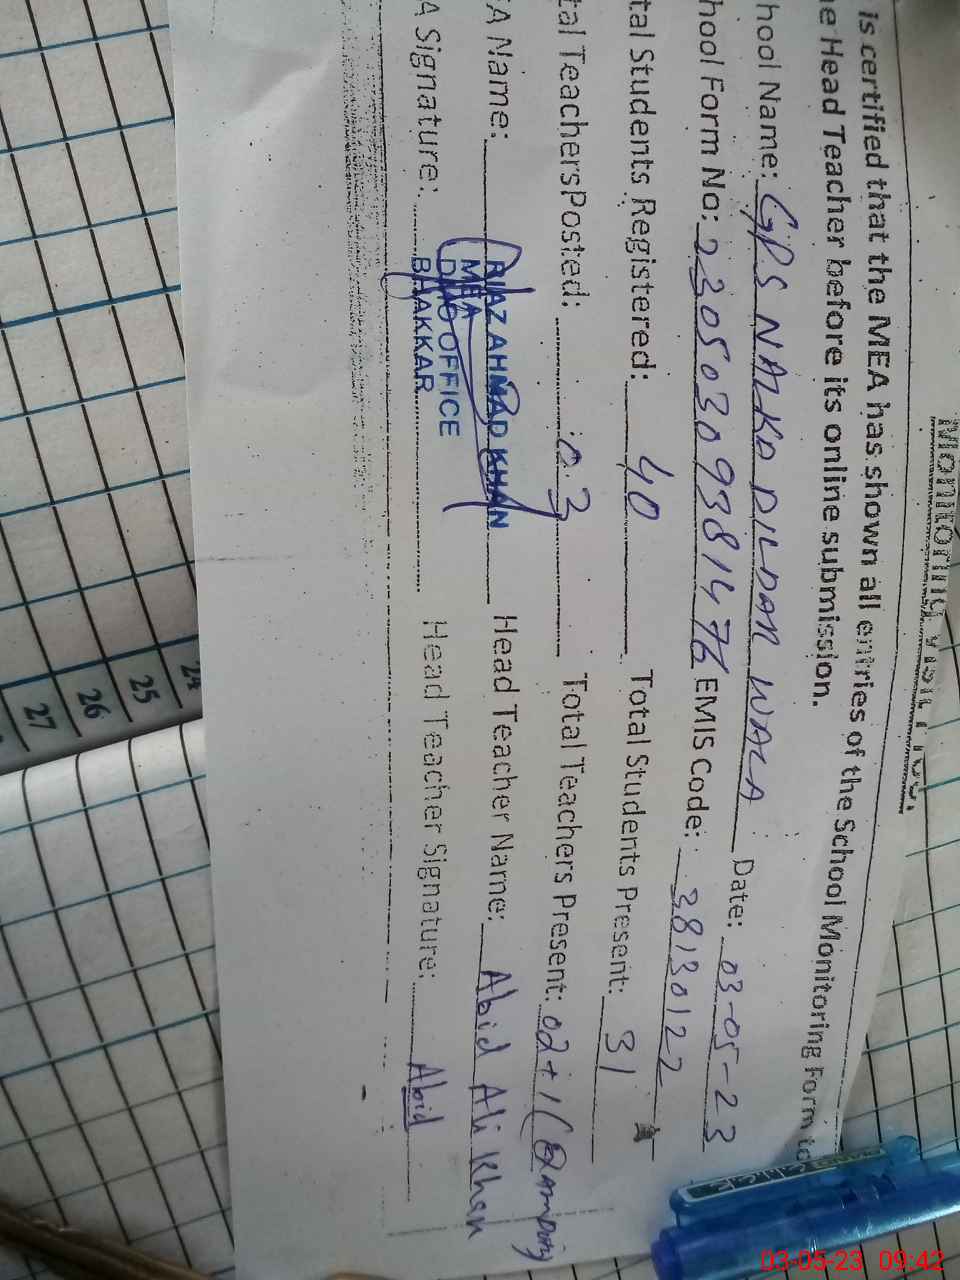 Monitoring Visit Proof
is certified that the MEA has shown all entries of the School Monitoring Form to
e Head Teacher before its online submission.
hool Name: GPS NALKA DILDAR WALA Date: 03-05-23
hool Form No: 23050309381476 EMIS Code: 38130122
tal Students Registered: 40 Total Students Present: 31
tal Teachers Posted: 03 Total Teachers Present: 02+1(
A Name: RIAZ AHMAD KHAN Head Teacher Name: Abid Ali Khan
MEA
A Signature: DMO OFFICE Head Teacher Signature: Abid
BHAKKAR
24
25
26
27
03-05-23 09:42